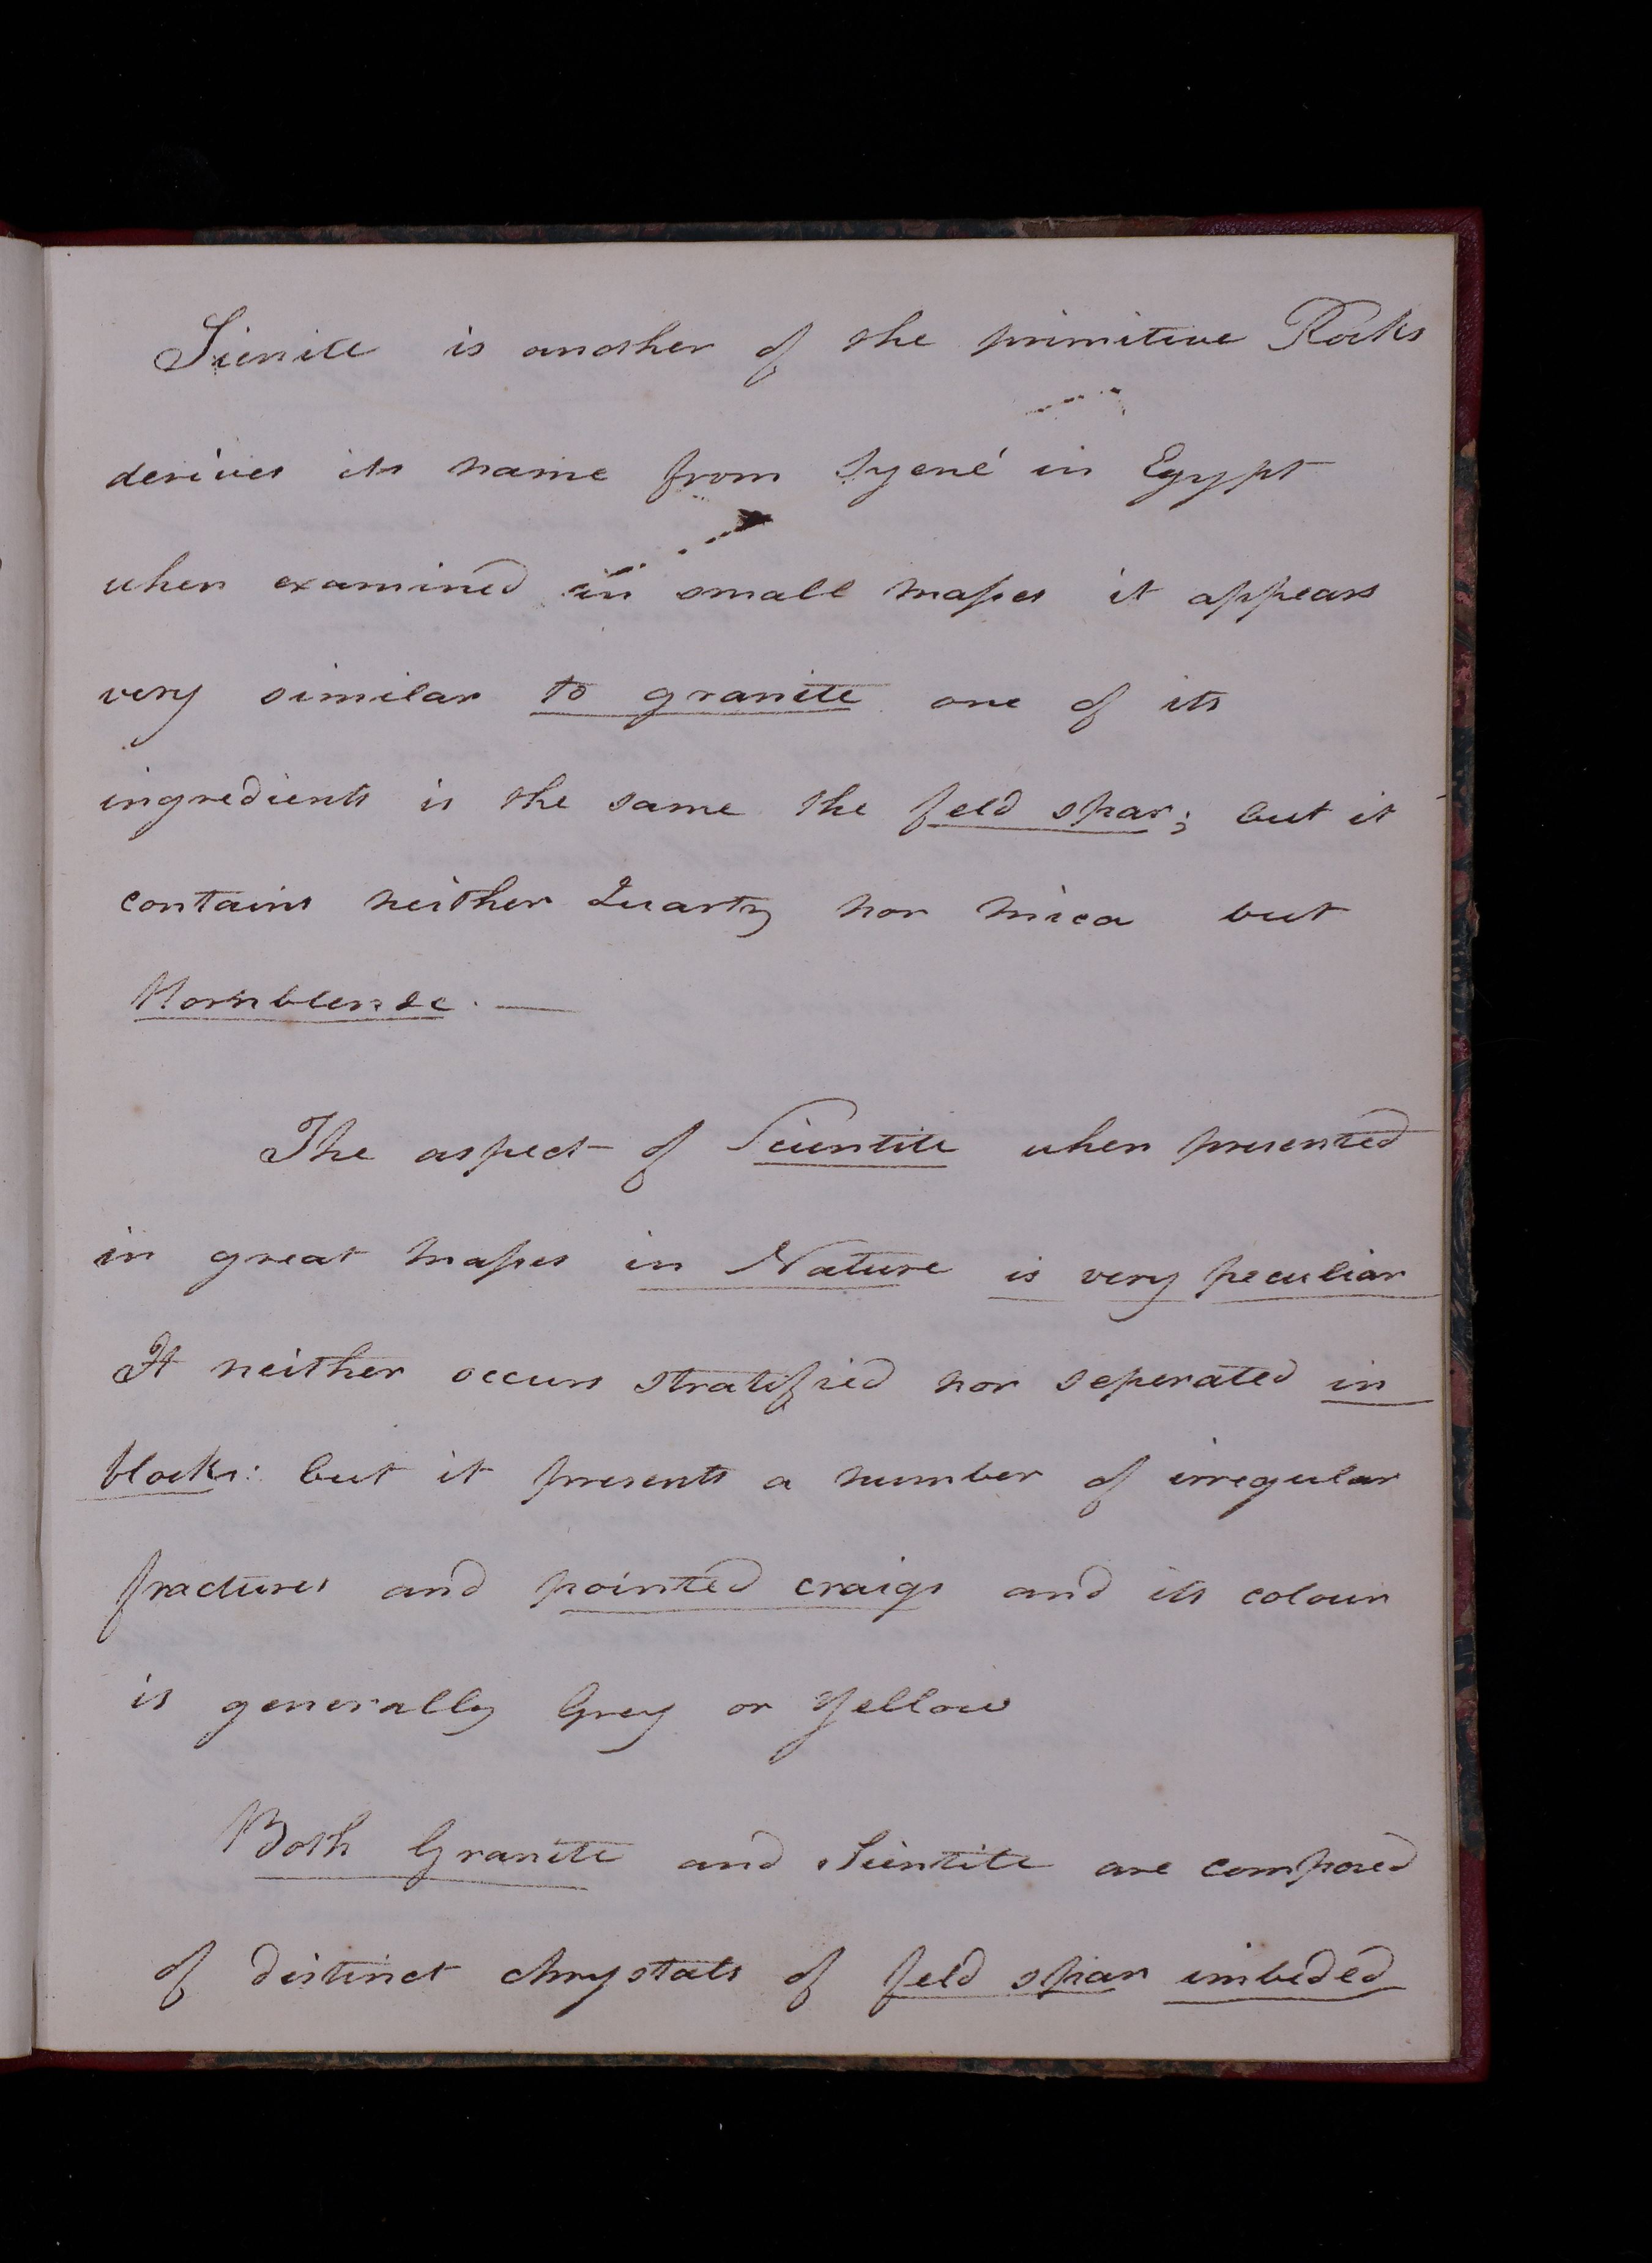 Sienite is another of the primitive Rocks
derives its name from Syené in Egypt
when examined in small maſses it appears
very similar to granite one of its
ingredients is the same the feld spar; but it
contains neither Quartz nor mica but
Hornblende. —
The aspect of Scientite when presented
in great maſses in Nature is very peculiar
It neither occurs stratified nor seperated in
blocks: but it presents a number of irregular
fractures and pointed craigs and its colour
is generally Grey or Yellow
Both Granite and Sientite are composed
of distinct chrystals of feld spar imbeded